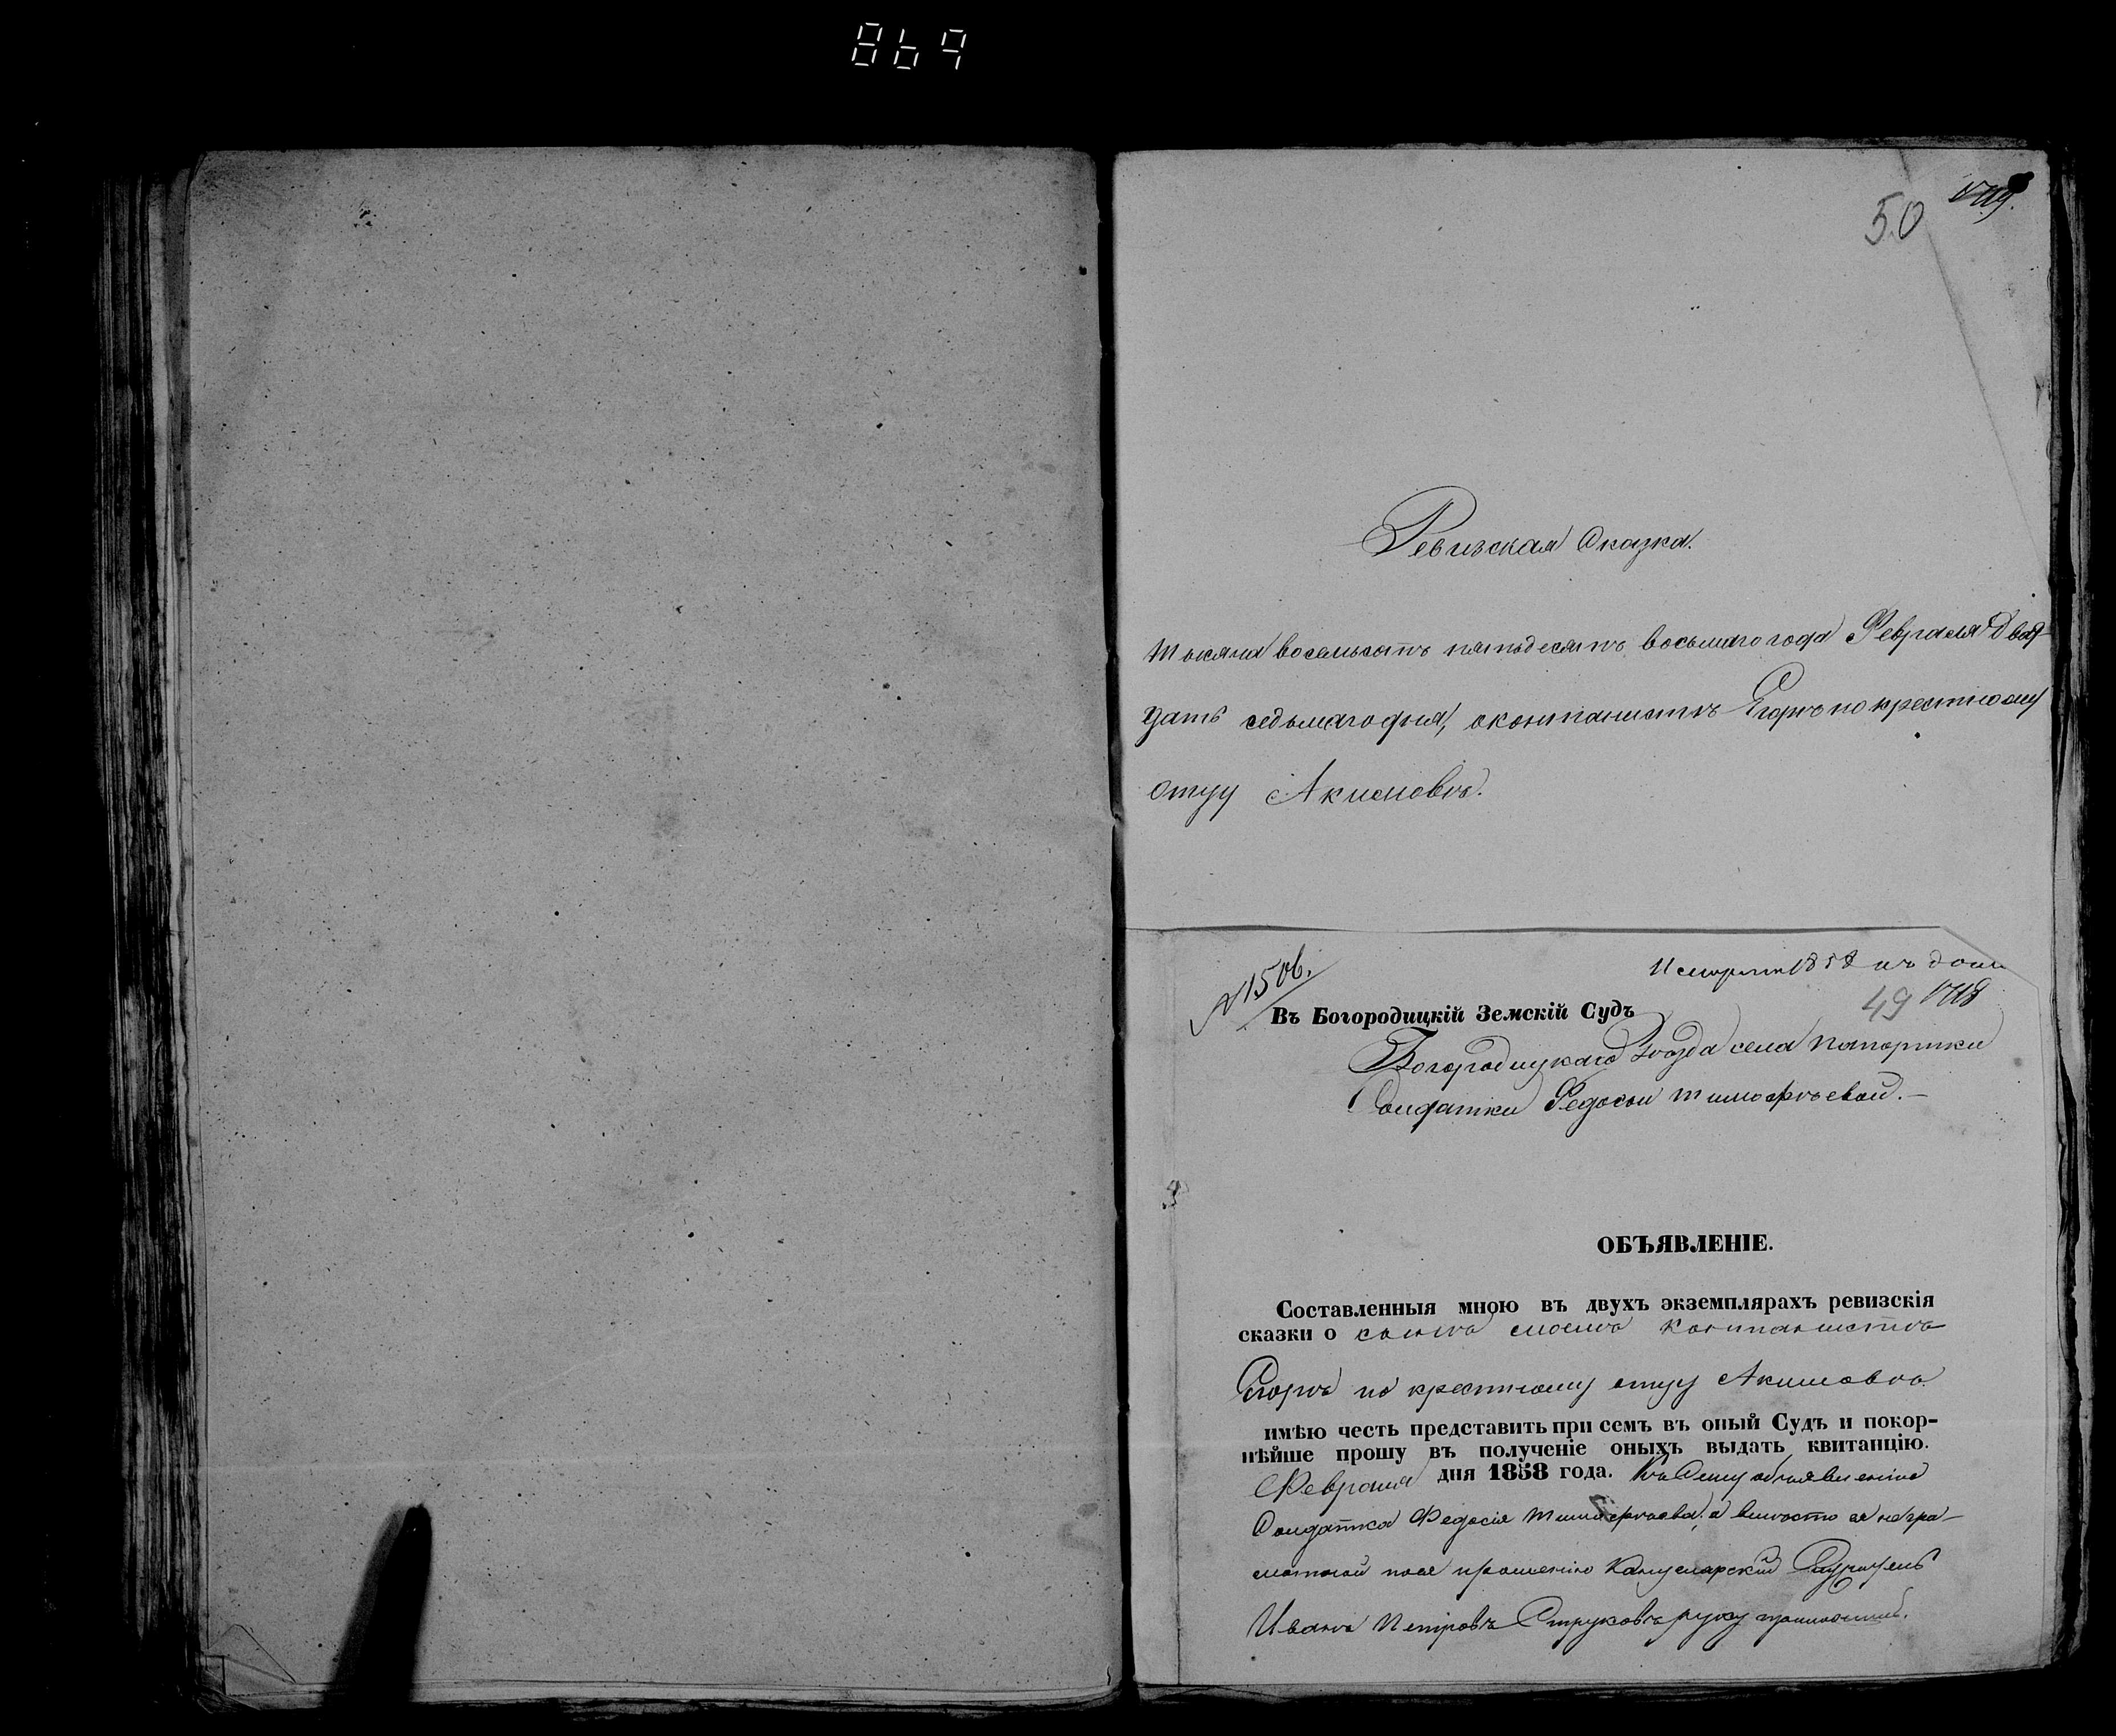 869
50 1719.
Ревизская Сказка.
тысяча восемьсотъ пятьдесятъ восьмаго года Февраля двад-
цать седьмаго дня, о контанистѣ Егорѣ по крестному
отцу Акимовѣ.
№ 1506.
1858
Въ Богородицкій Земскій Судъ
49 1718
Богородицкаго Уѣзда села Папортки
Солдатки Федосьи Тимофѣевой.-
ОБЪЯВЛЕНІЕ.
Составленныя мною въ двухъ экземплярахъ ревизскія
сказки о сынѣ моемъ контанистѣ
Егорѣ по крестному отцу Акимовѣ
имѣю честь представить при семъ въ оный Судъ и покор-
нѣйше прошу въ полученіе оныхъ выдать квитанцію.
Февраля дня 1858 года. Къ Сему объявленію
Солдатка Федосія Тимофѣева, а вмѣсто ея негра-
мотной по ея прошенію Канцелярскій Служитель
Иванъ Петровъ Струковъ руку приложилъ.